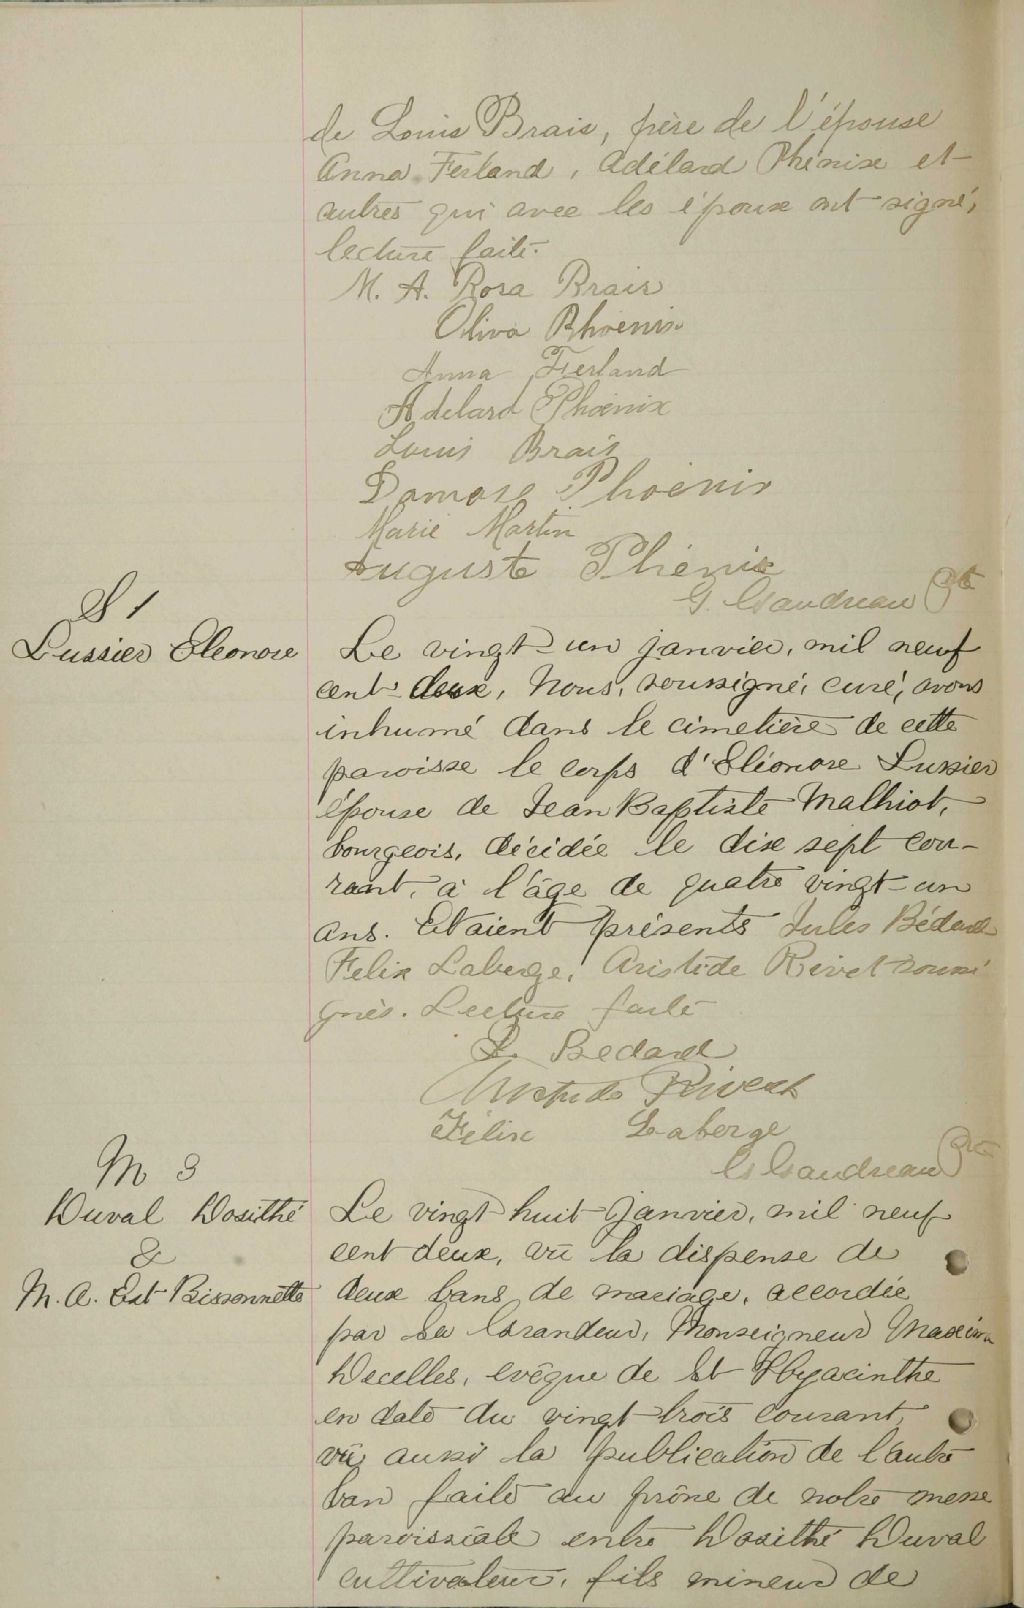 de Louis Brais, père de l'épouse
Anna Ferland, Adélard Phénix et
autres qui avec les époux ont signé,
lecture faite.
M. A. Rosa Brais
Oliva Phoenix
Anna Ferland
Adelard Phoenix
Louis Brais
Damase Phoenix
Marie Martin
Auguste Phénix
G. Gaudreau Ptre
S 1
Lussier Eleonore
Le vingt-un janvier, mil neuf
cent-deux, Nous, soussigné, curé, avons
inhumé dans le cimetière de cette
paroisse le corps d'Eléonore Lussier
épouse de Jean Baptiste Malhiot,
bourgeois, décédée le dix sept cou-
rant, à l'âge de quatre vingt-un
ans. Etaient présents Jules Bédard
Felix Laberge, Aristide Rivet soussi
gnés. Lecture faite
J. Bedard
Aristide Rivest
Félix Laberge
G Gaudreau Ptre
M 3
Duval Dosithé
&
M. A. Est Bissonnette
Le vingt huit janvier, mil neuf
cent deux, vû la dispense de
deux bans de mariage, accordée
par Sa Grandeur, Monseigneur Maxime
Decelles, evêque de St Hyacinthe
en date du vingt-trois courant,
vû aussi la publication de l'autre
ban faite au prône de notre messe
paroissiale entre Dosithé Duval
cultivateur, fils mineur de